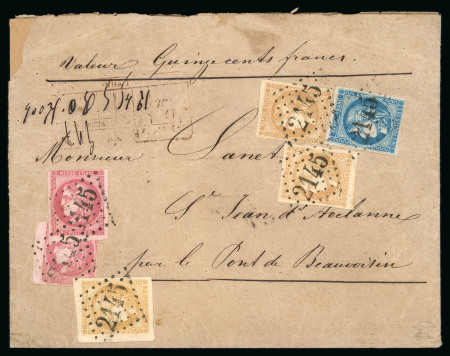 Valeur Quinze cents francs.
2145
2145
2145
Monsieur Lanet
St Jean d'Avelanne
2145
2145
par le Pont de Beauvoisin
2145